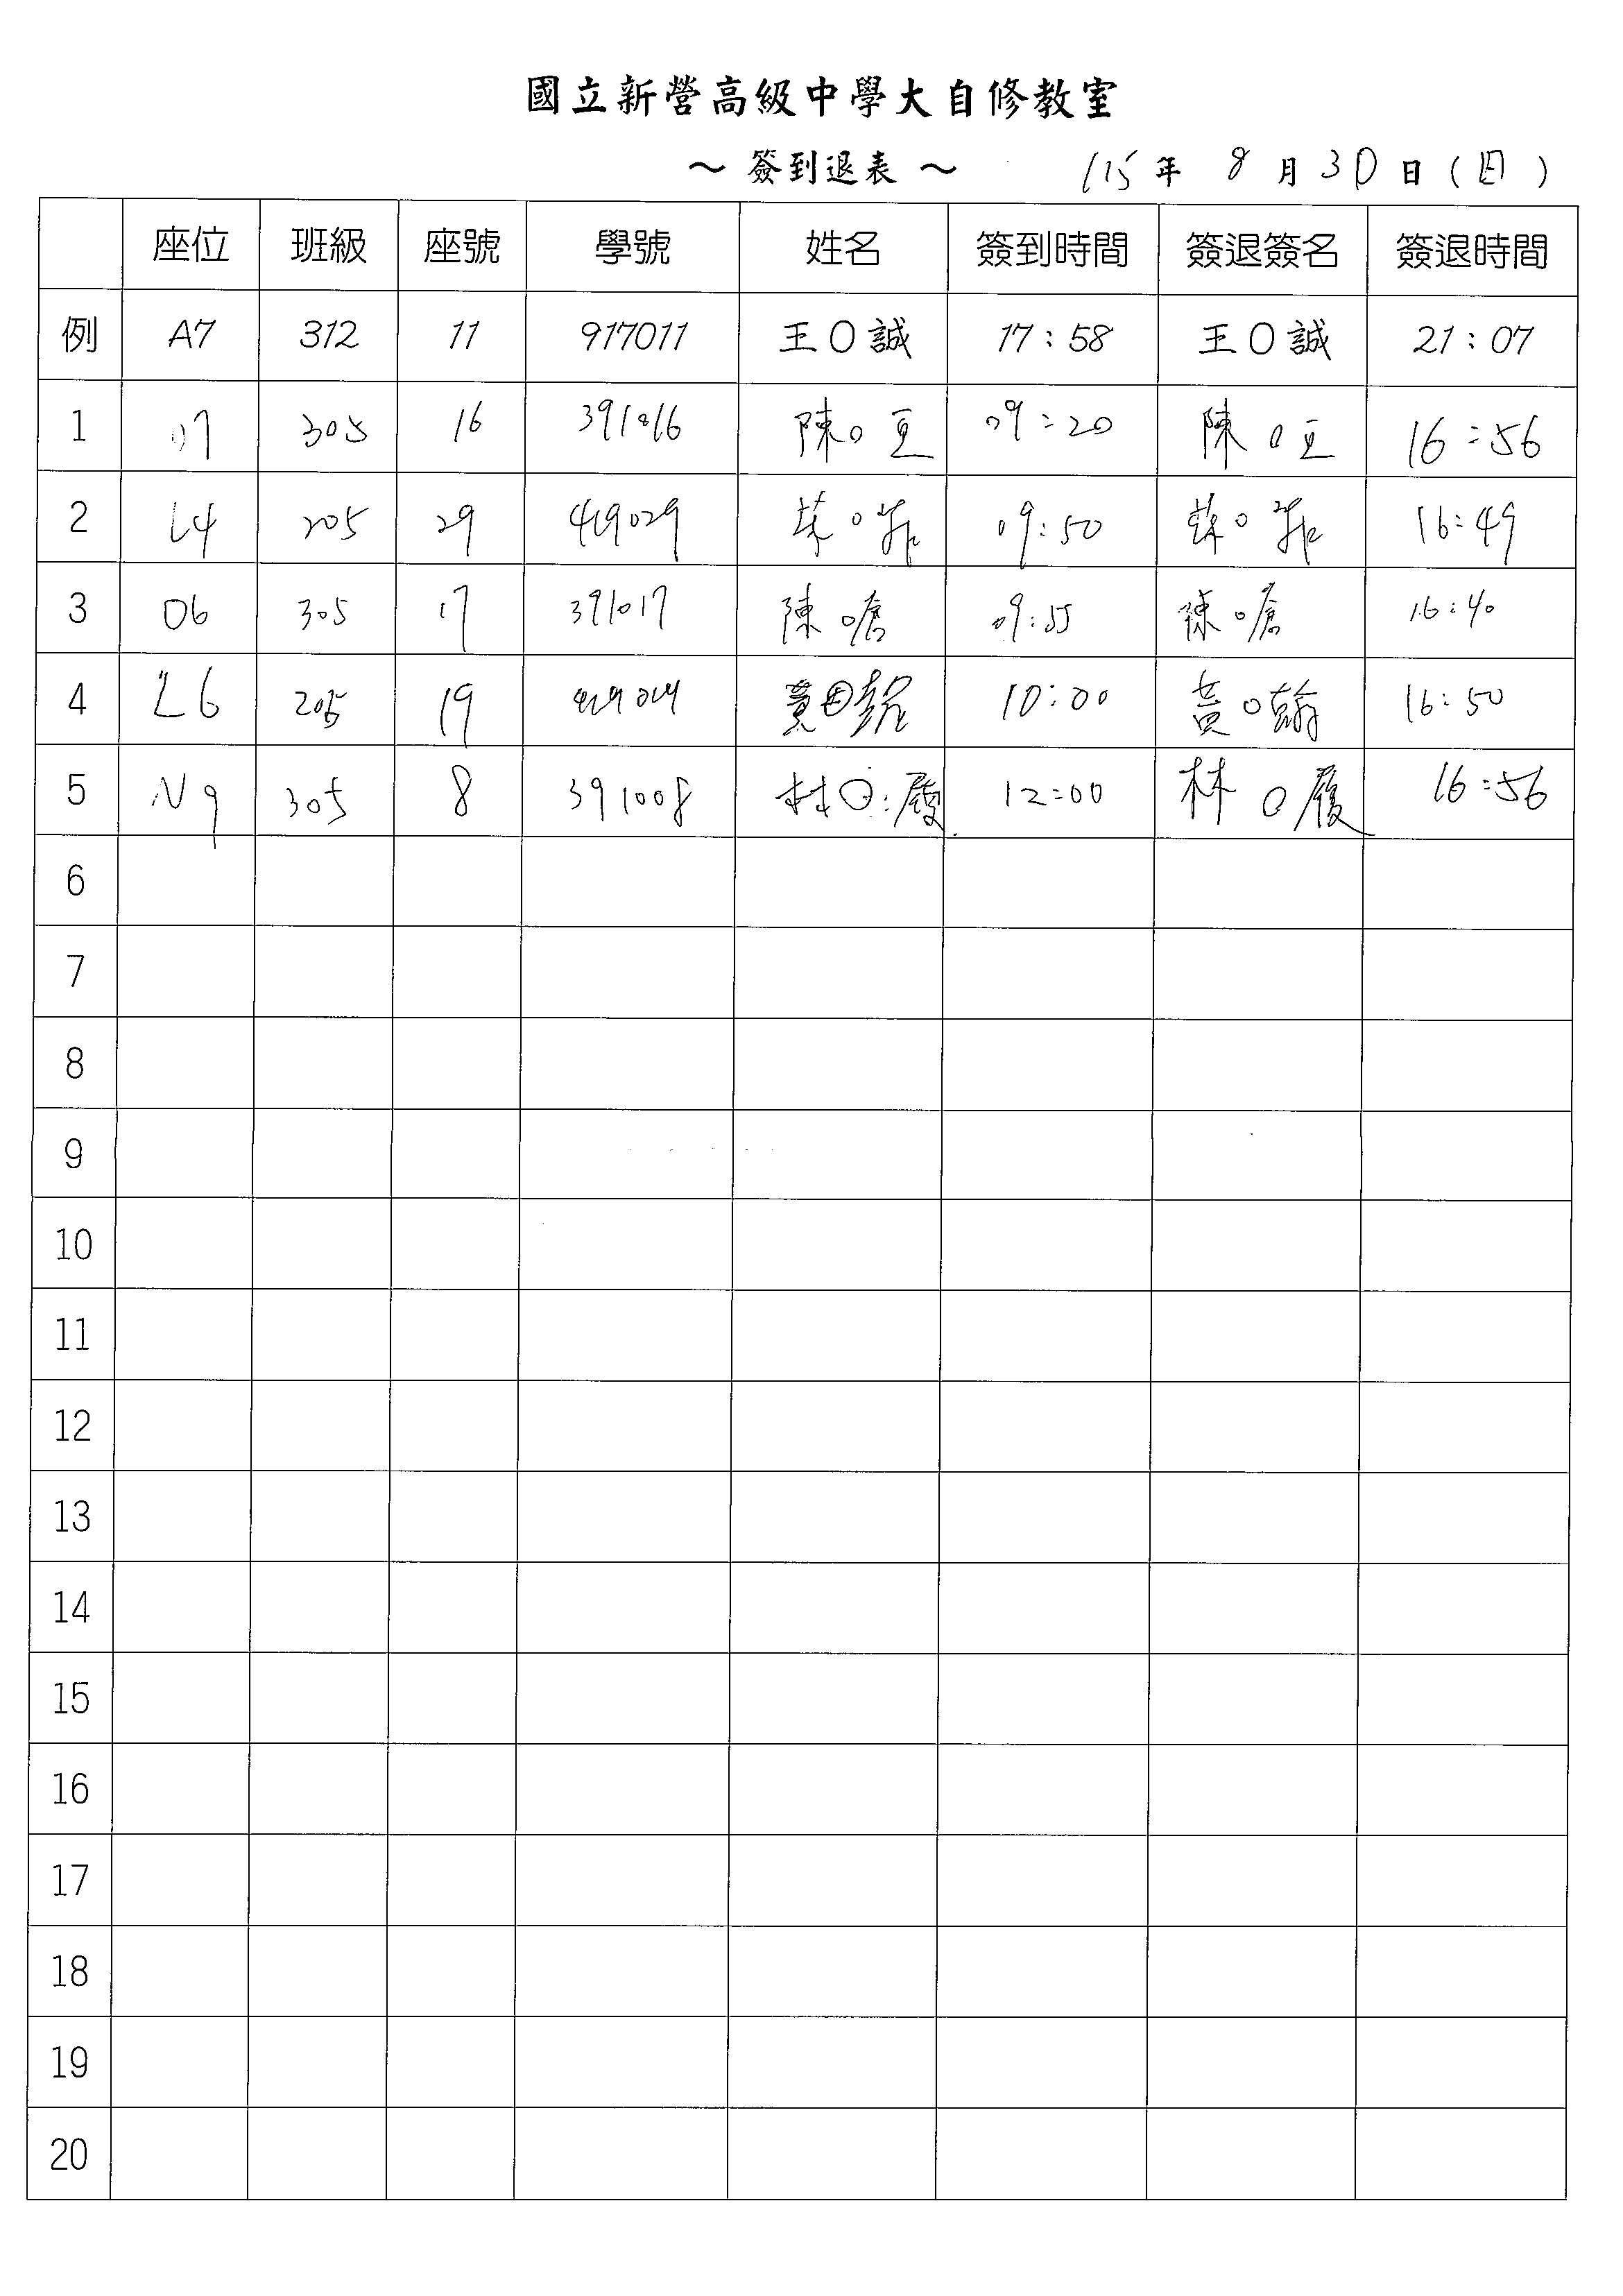 國立新營高級中學大自修教室
～ 簽到退表 ～ 115 年 8 月 30 日 (日)
座位 班級 座號 學號 姓名 簽到時間 簽退簽名 簽退時間
例 A7 312 11 917011 王O誠 17:58 王O誠 21:07
1 07 305 16 391016 陳O亘 09:20 陳O亘 16:56
2 L4 205 29 419029 09:50 16:49
3 06 305 17 391017 陳O嗆 09:55 陳O嗆 16:40
4 L6 205 19 黃O翰 10:00 黃O翰 16:50
5 N9 305 8 391008 林O履 12:00 林O履 16:56
6
7
8
9
10
11
12
13
14
15
16
17
18
19
20